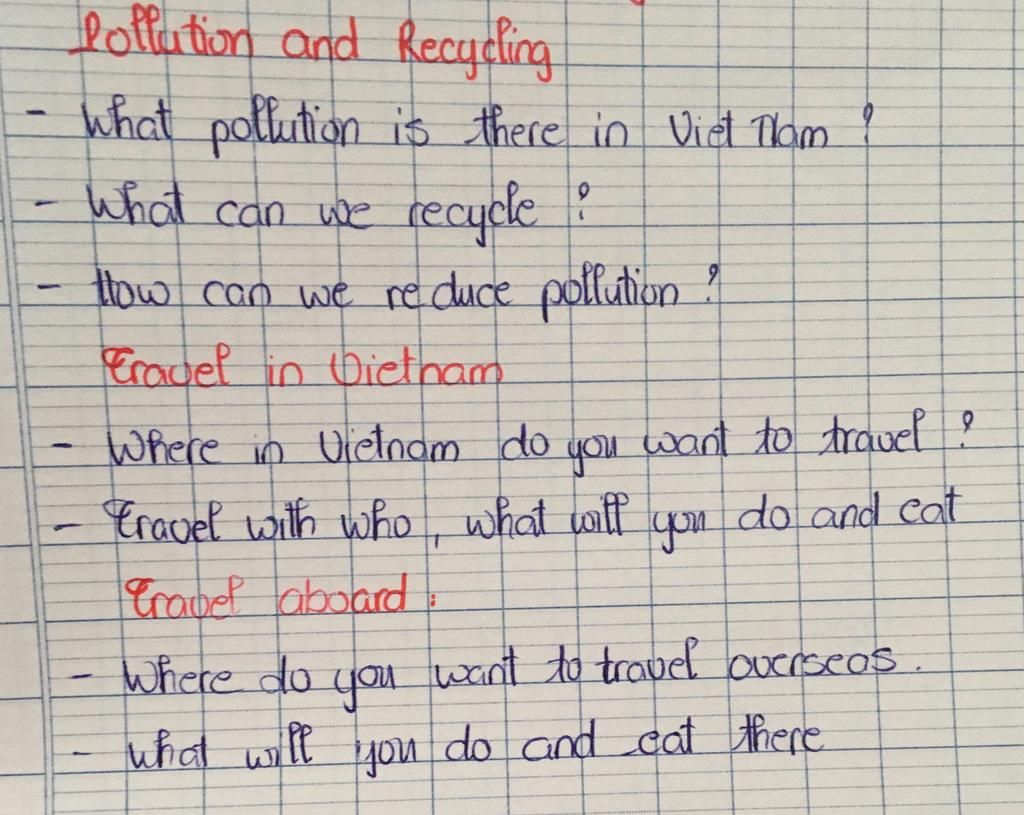 Pollution and Recycling
- What pollution is there in Viet Nam ?
- What can we recycle ?
- How can we reduce pollution ?
Travel in Vietnam
- Where in Vietnam do you want to travel ?
- Travel with who, what will you do and eat
Travel aboard :
- Where do you want to travel overseas.
- what will you do and eat there